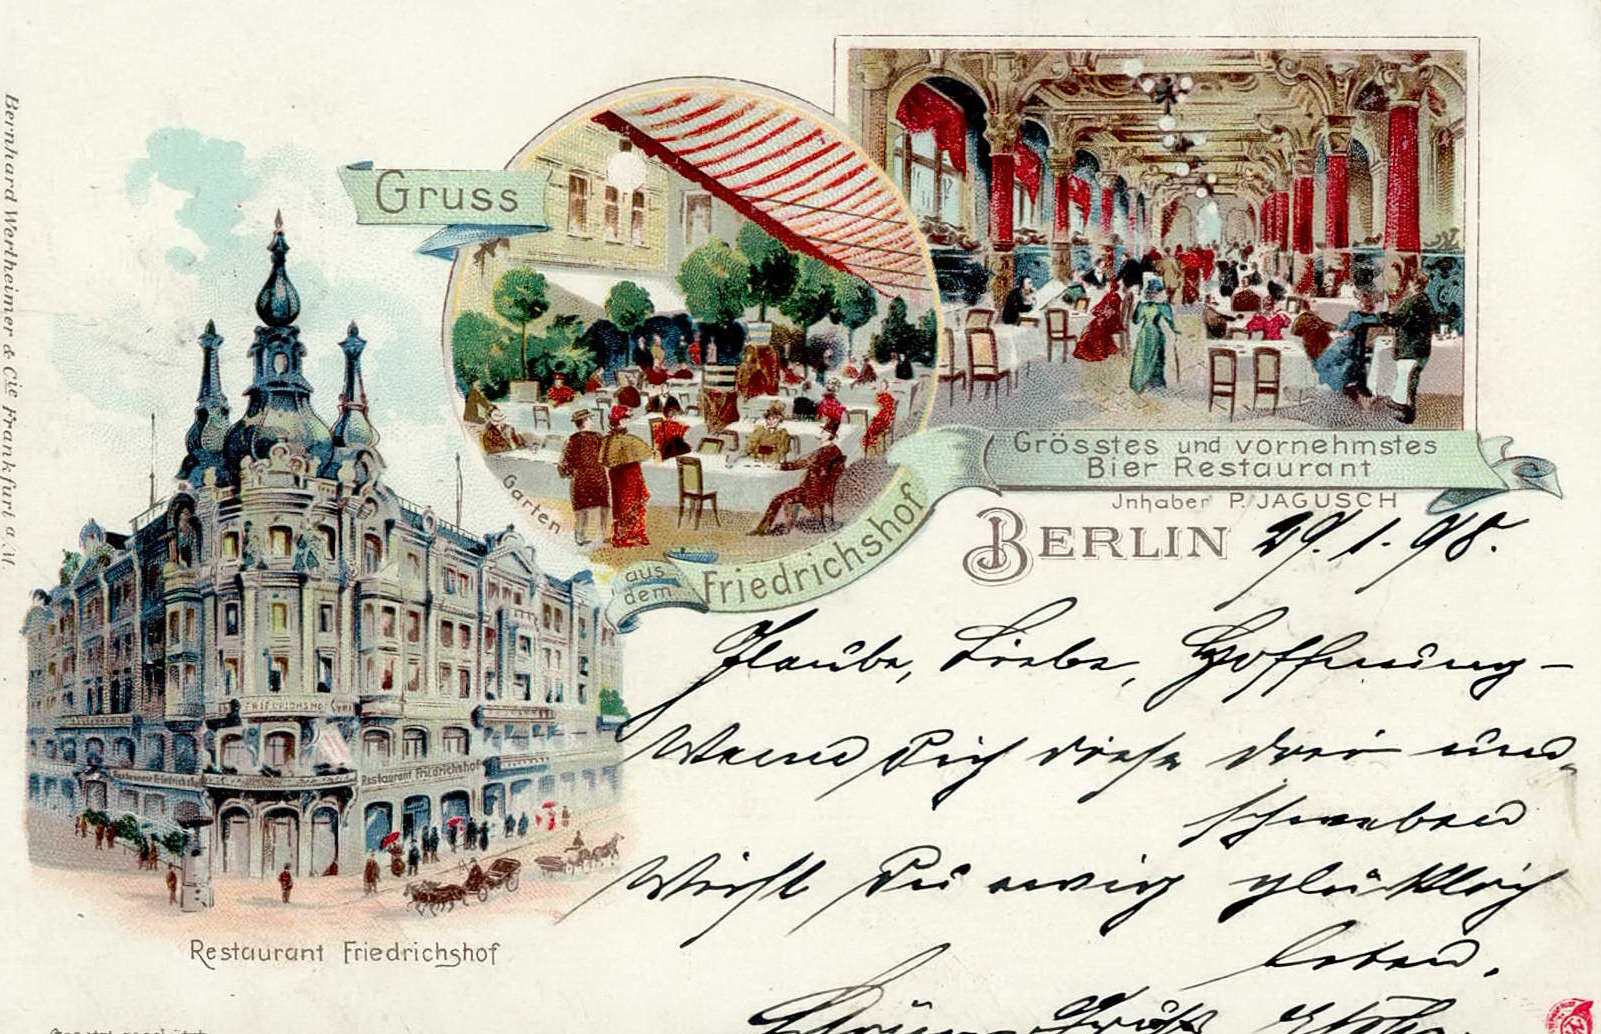 Bernhard Wertheimer & Cie Frankfurt a. M.
Gruss
aus
dem
Friedrichshof
Garten
Grösstes und vornehmstes
Bier Restaurant
Jnhaber P. JAGUSCH
BERLIN 29. 1. 98.
Glaube, Liebe, Hoffnung –
Wenn Dich diese drei um-
schweben
Wirst Du ewig glücklich
leben.
FRIEDRICHSHOF
Restaurant Friedrichshof
Restaurant Friedrichshof